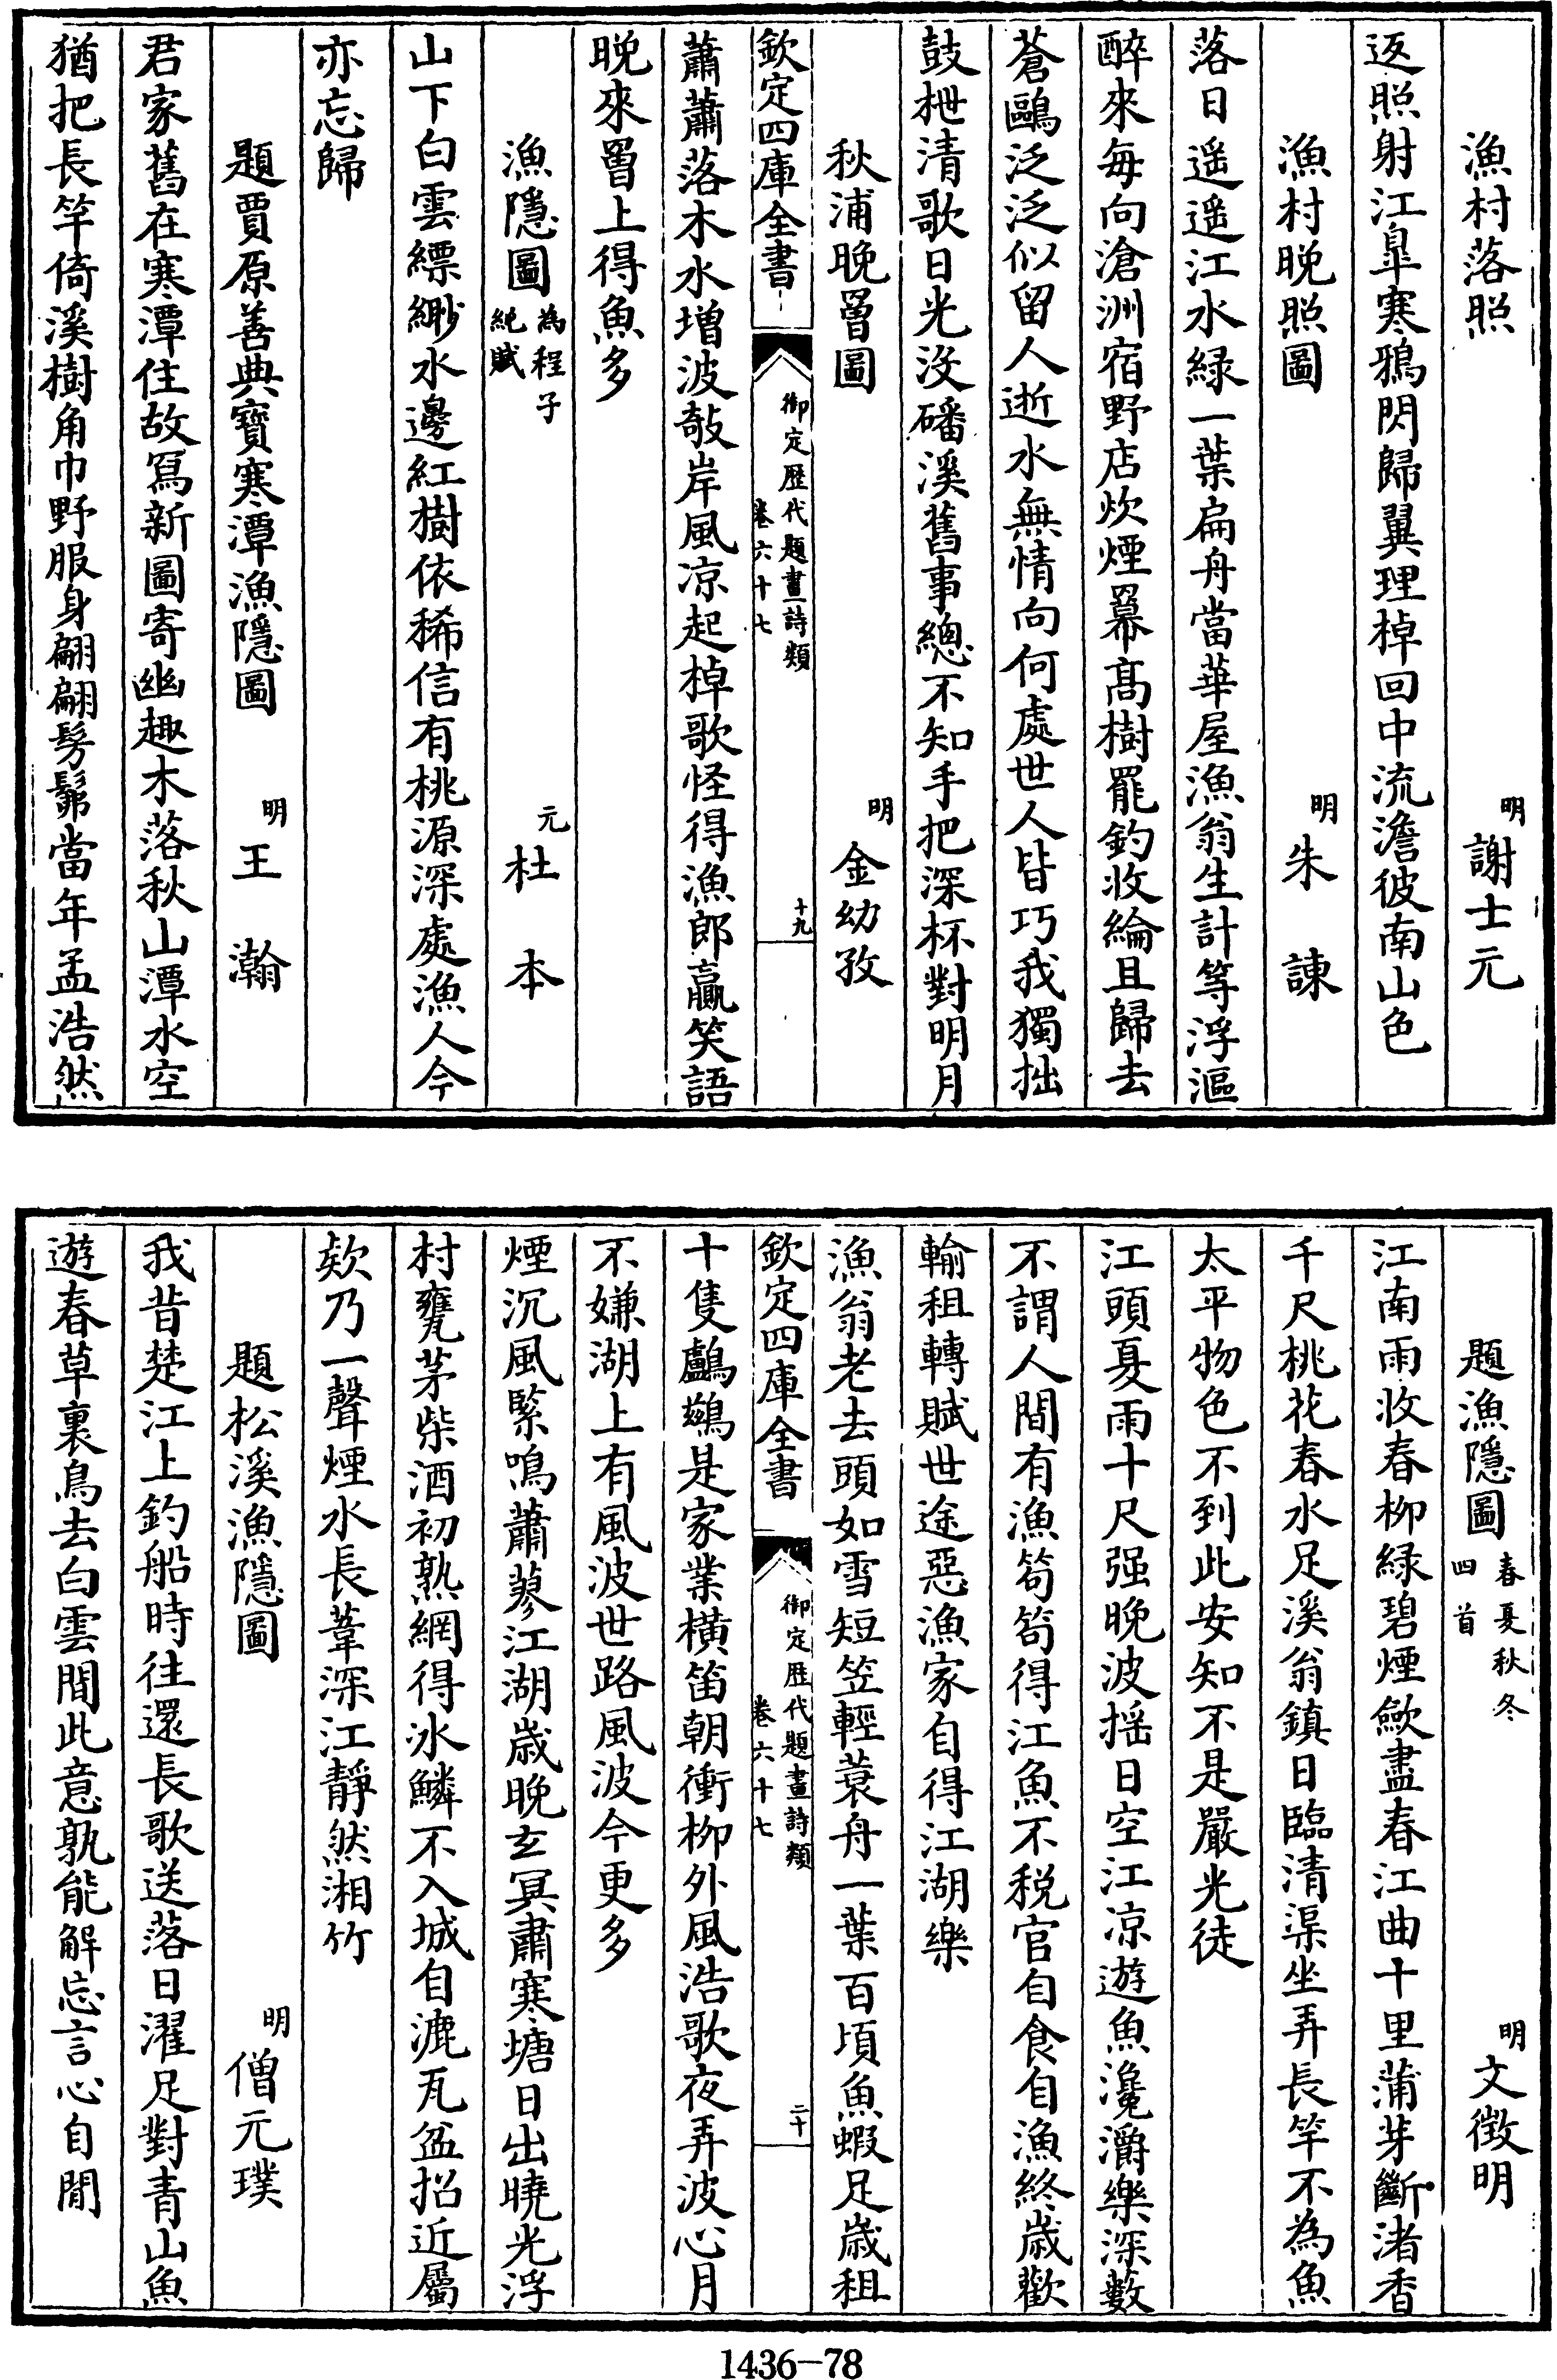 漁村落照　明　謝士元
返照射江臯寒鴉閃歸翼理棹回中流澹彼南山色
漁村晚照圖　明　朱諫
落日遥遥江水緑一葉扁舟當華屋漁翁生計等浮漚
醉來每向滄洲宿野店炊煙羃髙樹罷釣收綸且歸去
蒼鷗泛泛似留人逝水無情向何處世人皆巧我獨拙
鼓枻清歌日光沒磻溪舊事總不知手把深杯對明月
秋浦晚罾圖　明　金幼孜
欽定四庫全書　御定歴代題畫詩類　卷六十七　十九
蕭蕭落木水增波敧岸風凉起棹歌怪得漁郎贏笑語
晚來罾上得魚多
漁隱圖　為程子純賦　元　杜本
山下白雲縹緲水邊紅樹依稀信有桃源深處漁人今
亦忘歸
題賈原善典寶寒潭漁隱圖　明　王瀚
君家舊在寒潭住故寫新圖寄幽趣木落秋山潭水空
猶把長竿倚溪樹角巾野服身翩翩髣髴當年孟浩然
題漁隱圖　春夏秋冬四首　明　文徴明
江南雨收春柳緑碧煙歛盡春江曲十里蒲芽斷渚香
千尺桃花春水足溪翁鎮日臨清渠坐弄長竿不為魚
太平物色不到此安知不是嚴光徒
江頭夏雨十尺强晚波揺日空江凉遊魚瀺灂樂深藪
不謂人間有漁笱笱得江魚不税官自食自漁終歲歡
輸租轉賦世途惡漁家自得江湖樂
漁翁老去頭如雪短笠輕蓑舟一葉百頃魚蝦足歲租
欽定四庫全書　御定歴代題畫詩類　卷六十七　二十
十隻鸕鷀是家業横笛朝衝柳外風浩歌夜弄波心月
不嫌湖上有風波世路風波今更多
煙沉風緊鳴蕭蓼江湖歲晚玄冥肅寒塘日出曉光浮
村甕茅柴酒初熟網得冰鱗不入城自漉瓦盆招近屬
欸乃一聲煙水長葦深江靜然湘竹
題松溪漁隱圖　明　僧元璞
我昔楚江上釣船時往還長歌送落日濯足對青山魚
遊春草裏鳥去白雲間此意孰能解忘言心自閒
1436-78